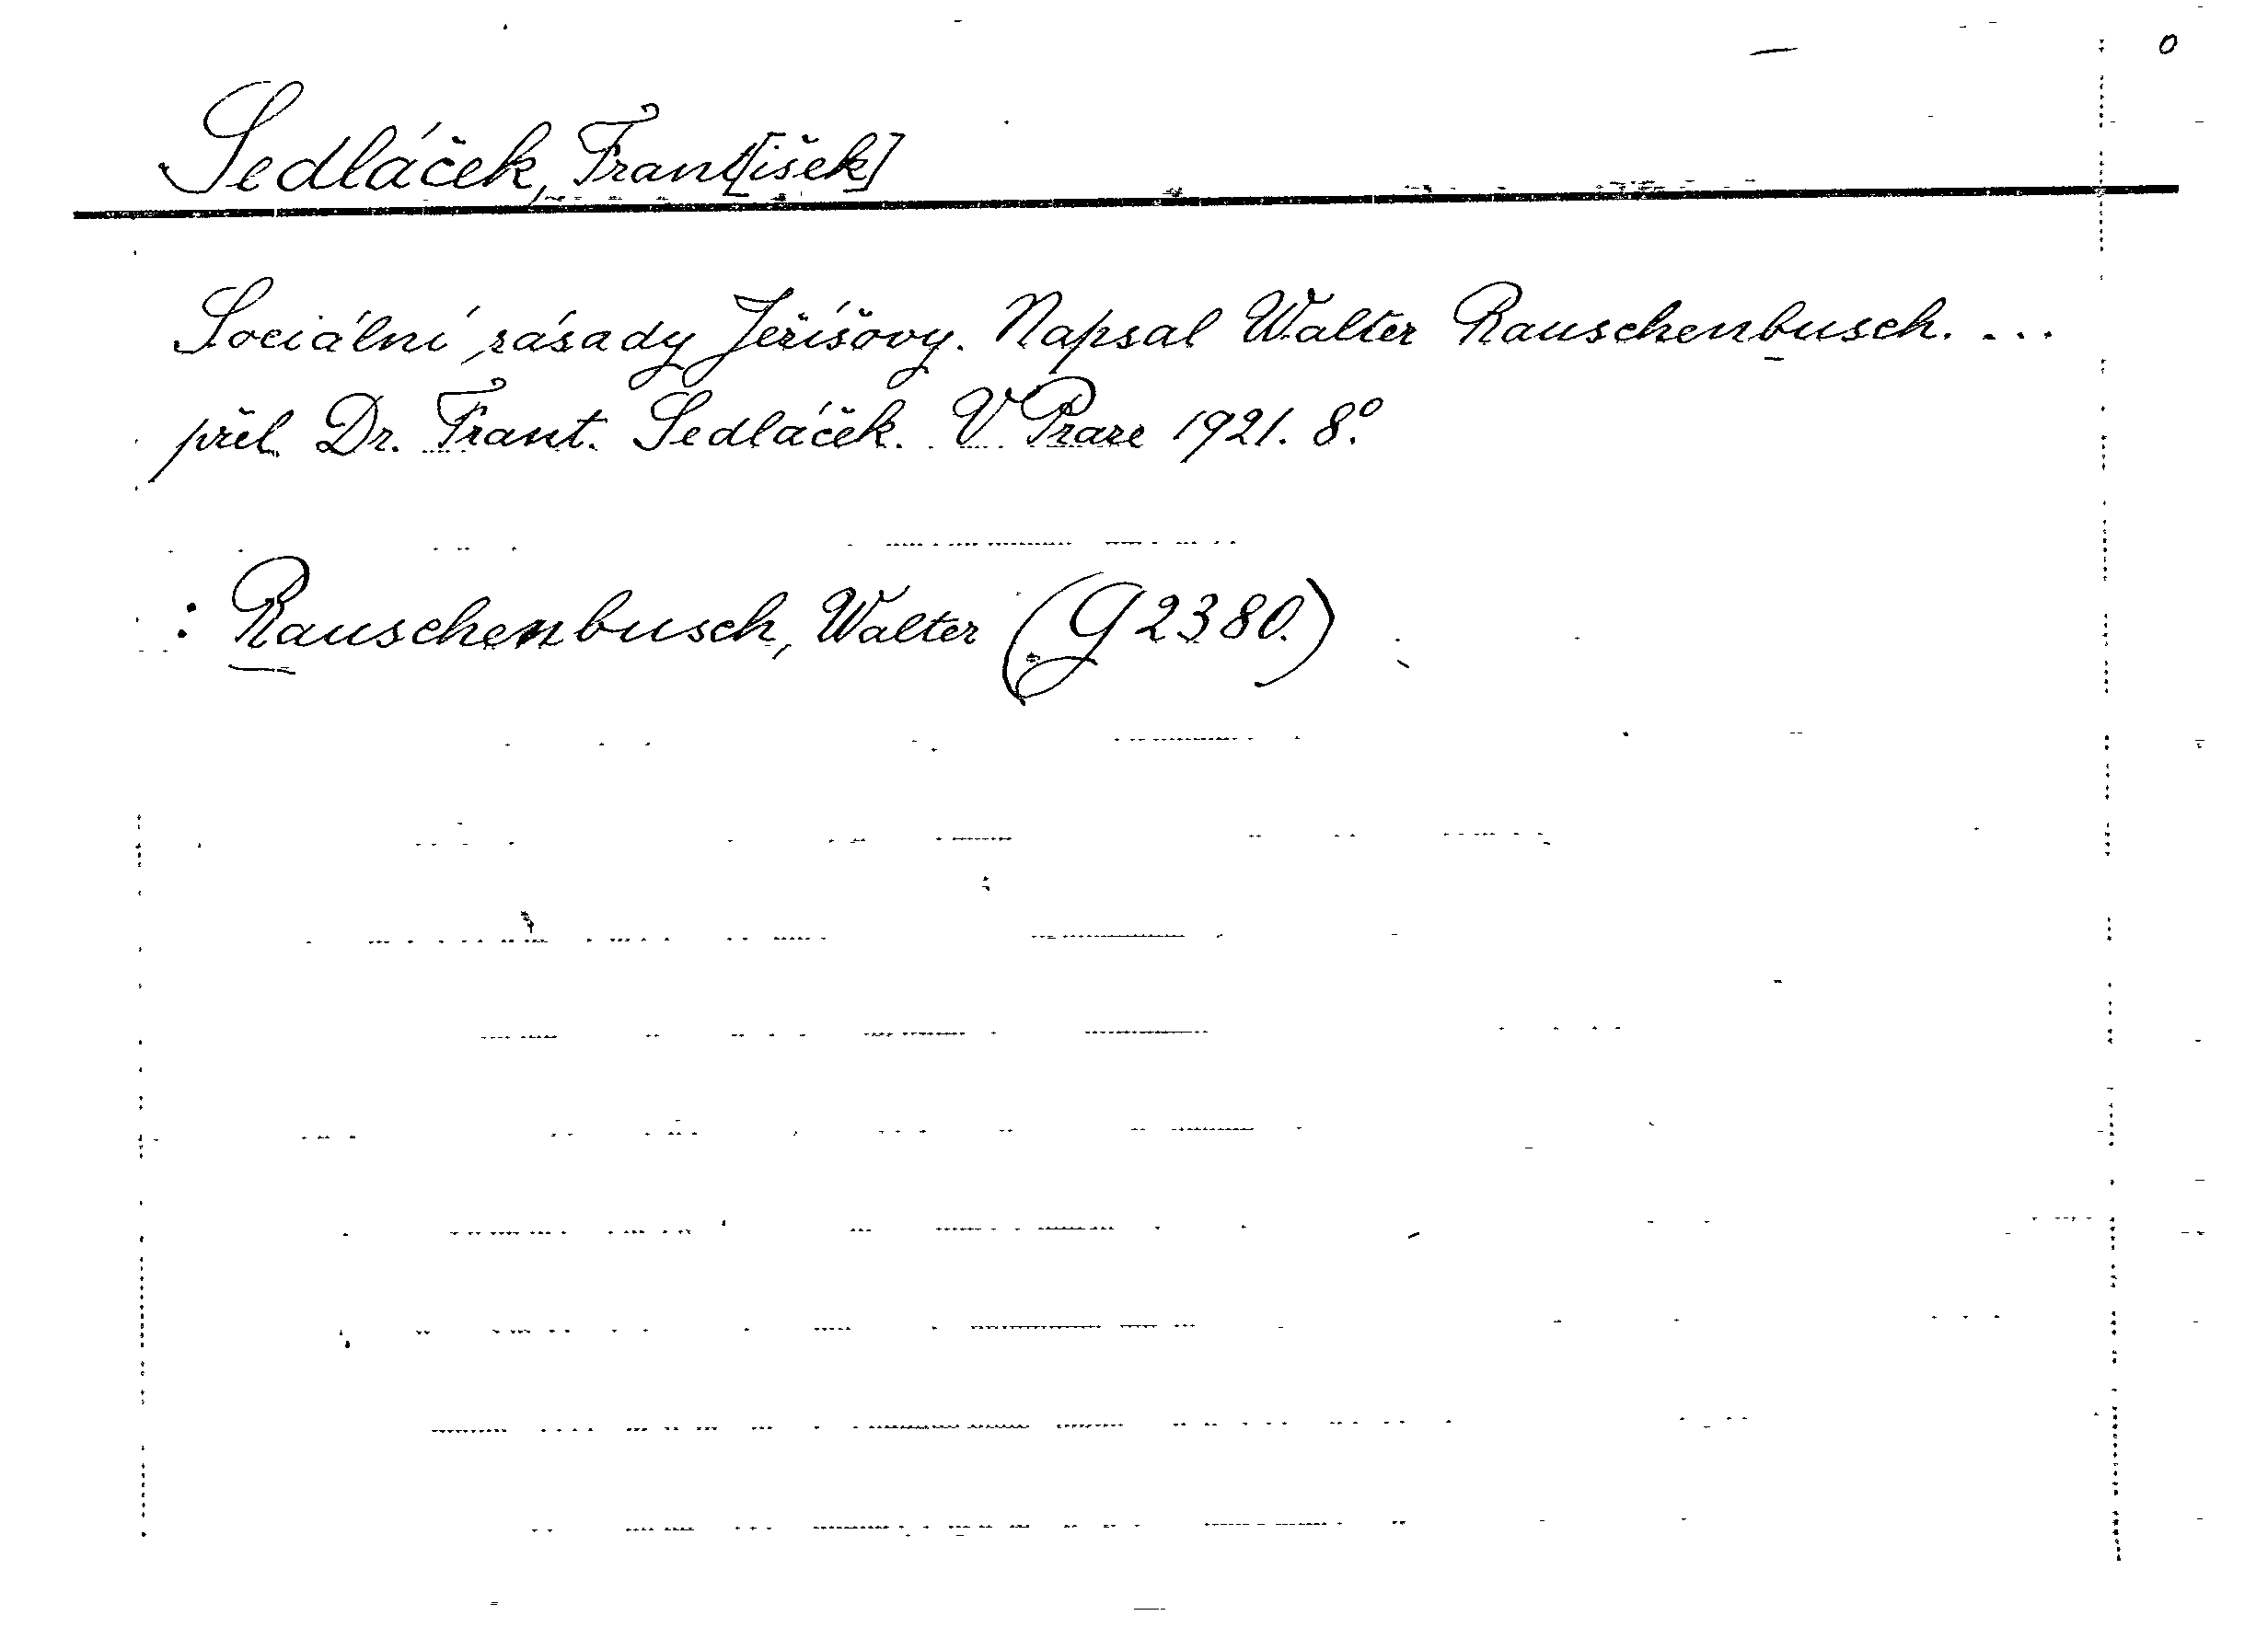 Sedláček, Frant[išek]
Sociální zásady Ježíšovy. Napsal Walter Rauschenbusch. ...
přel. Dr. Frant. Sedláček. V Praze 1921. 8°.
: Rauschenbusch, Walter (G 2380.)